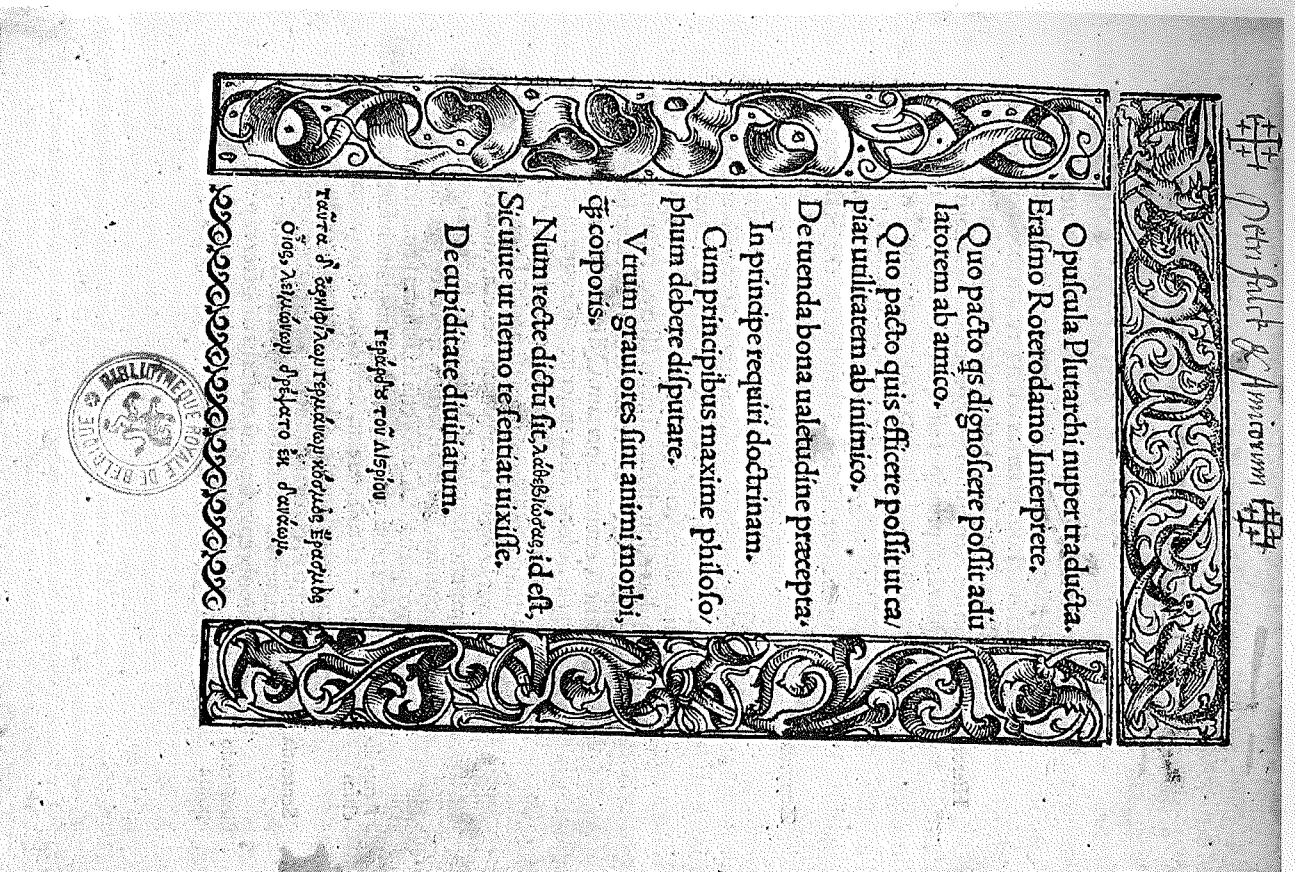 Petri salice & Amicorum
Opuſcula Plutarchi nuper traducta.
Eraſmo Roterodamo Interprete.
Quo pacto qs dignoſcere poſſit adu
latorem ab amico.
Quo pacto quis efficere poſſit ut ca/
piat utilitatem ab inimico.
De tuenda bona ualetudine præcepta.
In principe requiri doctrinam.
Cum principibus maxime philoſo/
phum debere diſputare.
Vtrum grauiores ſint animi morbi,
q̃ corporis.
Num recte dictũ ſit, λάθε βιώσας, id eſt,
Sic uiue ut nemo te ſentiat uixiſſe.
De cupiditate diuitiarum.
τοῦ
ταῦτα Ἔρασμὸς
λειμώνωμ δρέψατο ἐκ δαναῶμ.
BIBLIOTHEQUE ROYALE DE BELGIQUE